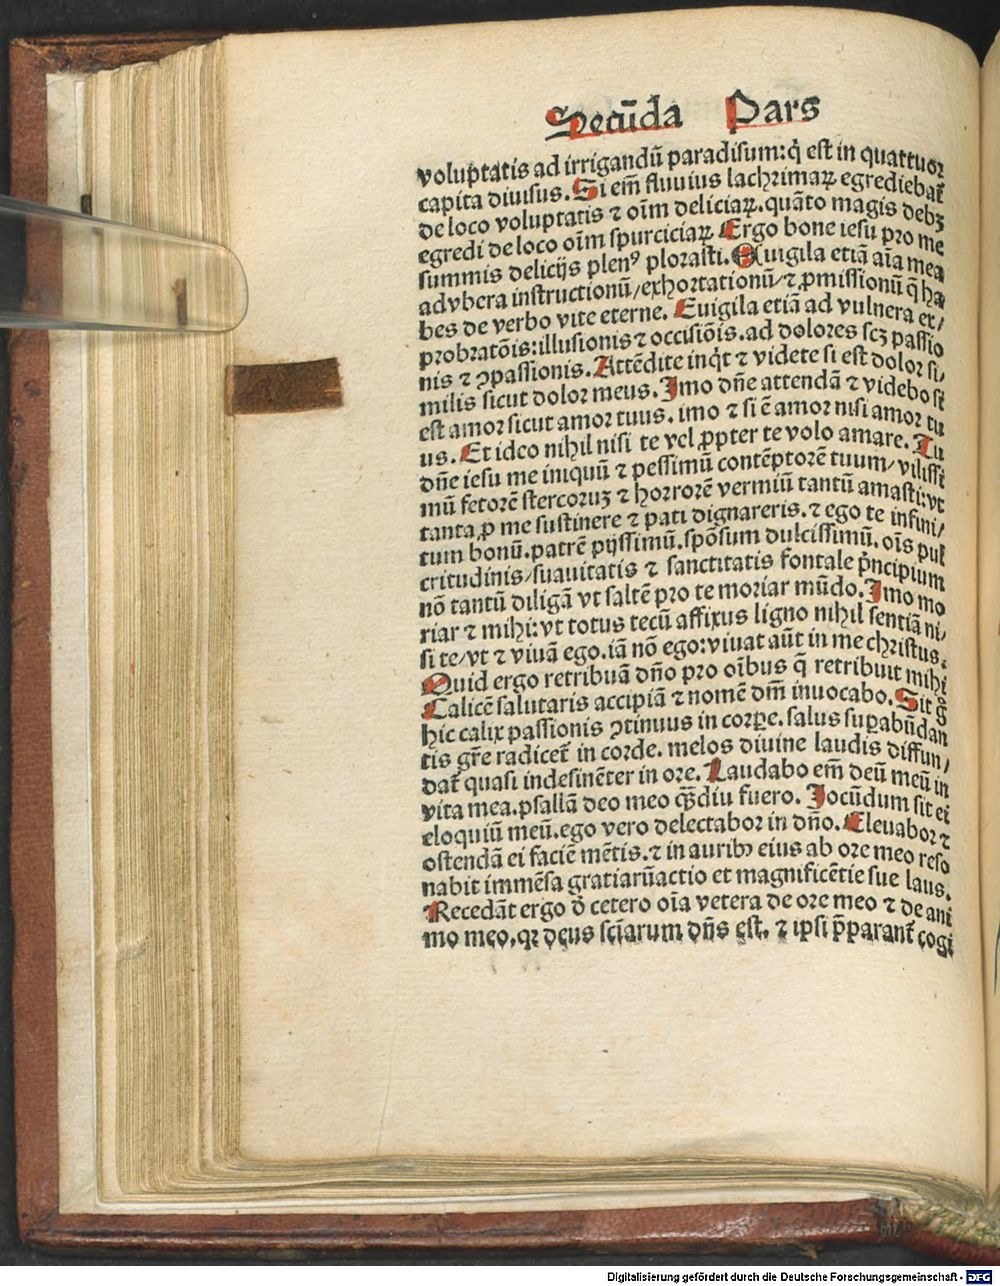 Secūda Pars
voluptatis ad irrigandū paradisum: q̇ est in quattuor
capita divisus. Si em̄ fluvius lachrimaꝝ egrediebat᷑
de loco voluptatis ⁊ oīm deliciaꝝ. quāto magis debꝫ
egredi de loco oīm spurciciaꝝ Ergo bone iesu pro me
summis delicijs plenꝰ plorasti. Euigila etiā aīa mea
ad vbera instructionū/exhortationū/⁊ ꝓmissionū q̄ ha
bes de verbo vite eterne. Euigila etiā ad vulnera ex/
probratōis: illusionis ⁊ occisiōis. ad dolores scꝫ passio
nis ⁊ ꝯpassionis. Attēdite inqͥt ⁊ videte si est dolor si/
milis sicut dolor meus. Imo dn̄e attendā ⁊ videbo si
est amor sicut amor tuus. imo ⁊ si ē amor nisi amor tu
us. Et ideo nihil nisi te vel ꝓpter te volo amare. Tu
dn̄e iesu me iniquū ⁊ pessimū contēptorē tuum/vilissi
mū fetorē stercoruꝫ ⁊ horrorē vermiū tantū amasti: vt
tanta ꝓ me sustinere ⁊ pati dignareris. ⁊ ego te infini/
tum bonū. patrē pijssimū. spōsum dulcissimū. oīs pul
critudinis/suauitatis ⁊ sanctitatis fontale pͥncipium
nō tantū diligā vt saltē pro te moriar mūdo. Imo mo
riar ⁊ mihi: vt totus tecū affixus ligno nihil sentiā ni/
si te/vt ⁊ viuā ego. iā nō ego: viuat aūt in me christus.
Quid ergo retribuā dn̄o pro oībus q̄ retribuit mihi
Calicē salutaris accipiā ⁊ nomē dn̄i inuocabo. Sit gͦ
hic calix passionis ꝯtinuus in corꝑe. salus suꝑabūdan
tis gr̄e radicet᷑ in corde. melos diuine laudis diffun/
dat᷑ quasi indesinēter in ore. Laudabo em̄ deū meū in
vita mea. psallā deo meo qᷓ̄diu fuero. Jocūdum sit ei
eloquiū meū. ego vero delectabor in dn̄o. Eleuabor ⁊
ostendā ei faciē mētis. ⁊ in auribꝰ eius ab ore meo reso
nabit immēsa gratiarūactio et magnificētie sue laus.
Recedāt ergo d̄ cetero oīa vetera de ore meo ⁊ de ani
mo meo. qꝛ deus sciar̄um dn̄s est. ⁊ ipsi p̄parant᷑ cogi
Digitalisierung gefördert durch die Deutsche Forschungsgemeinschaft - DFG